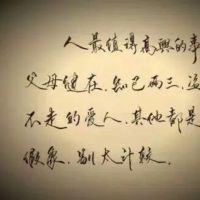 人最值得高兴的事
父母健在、知己两三、盗
不走的爱人、其他都是
假象、别太计较。